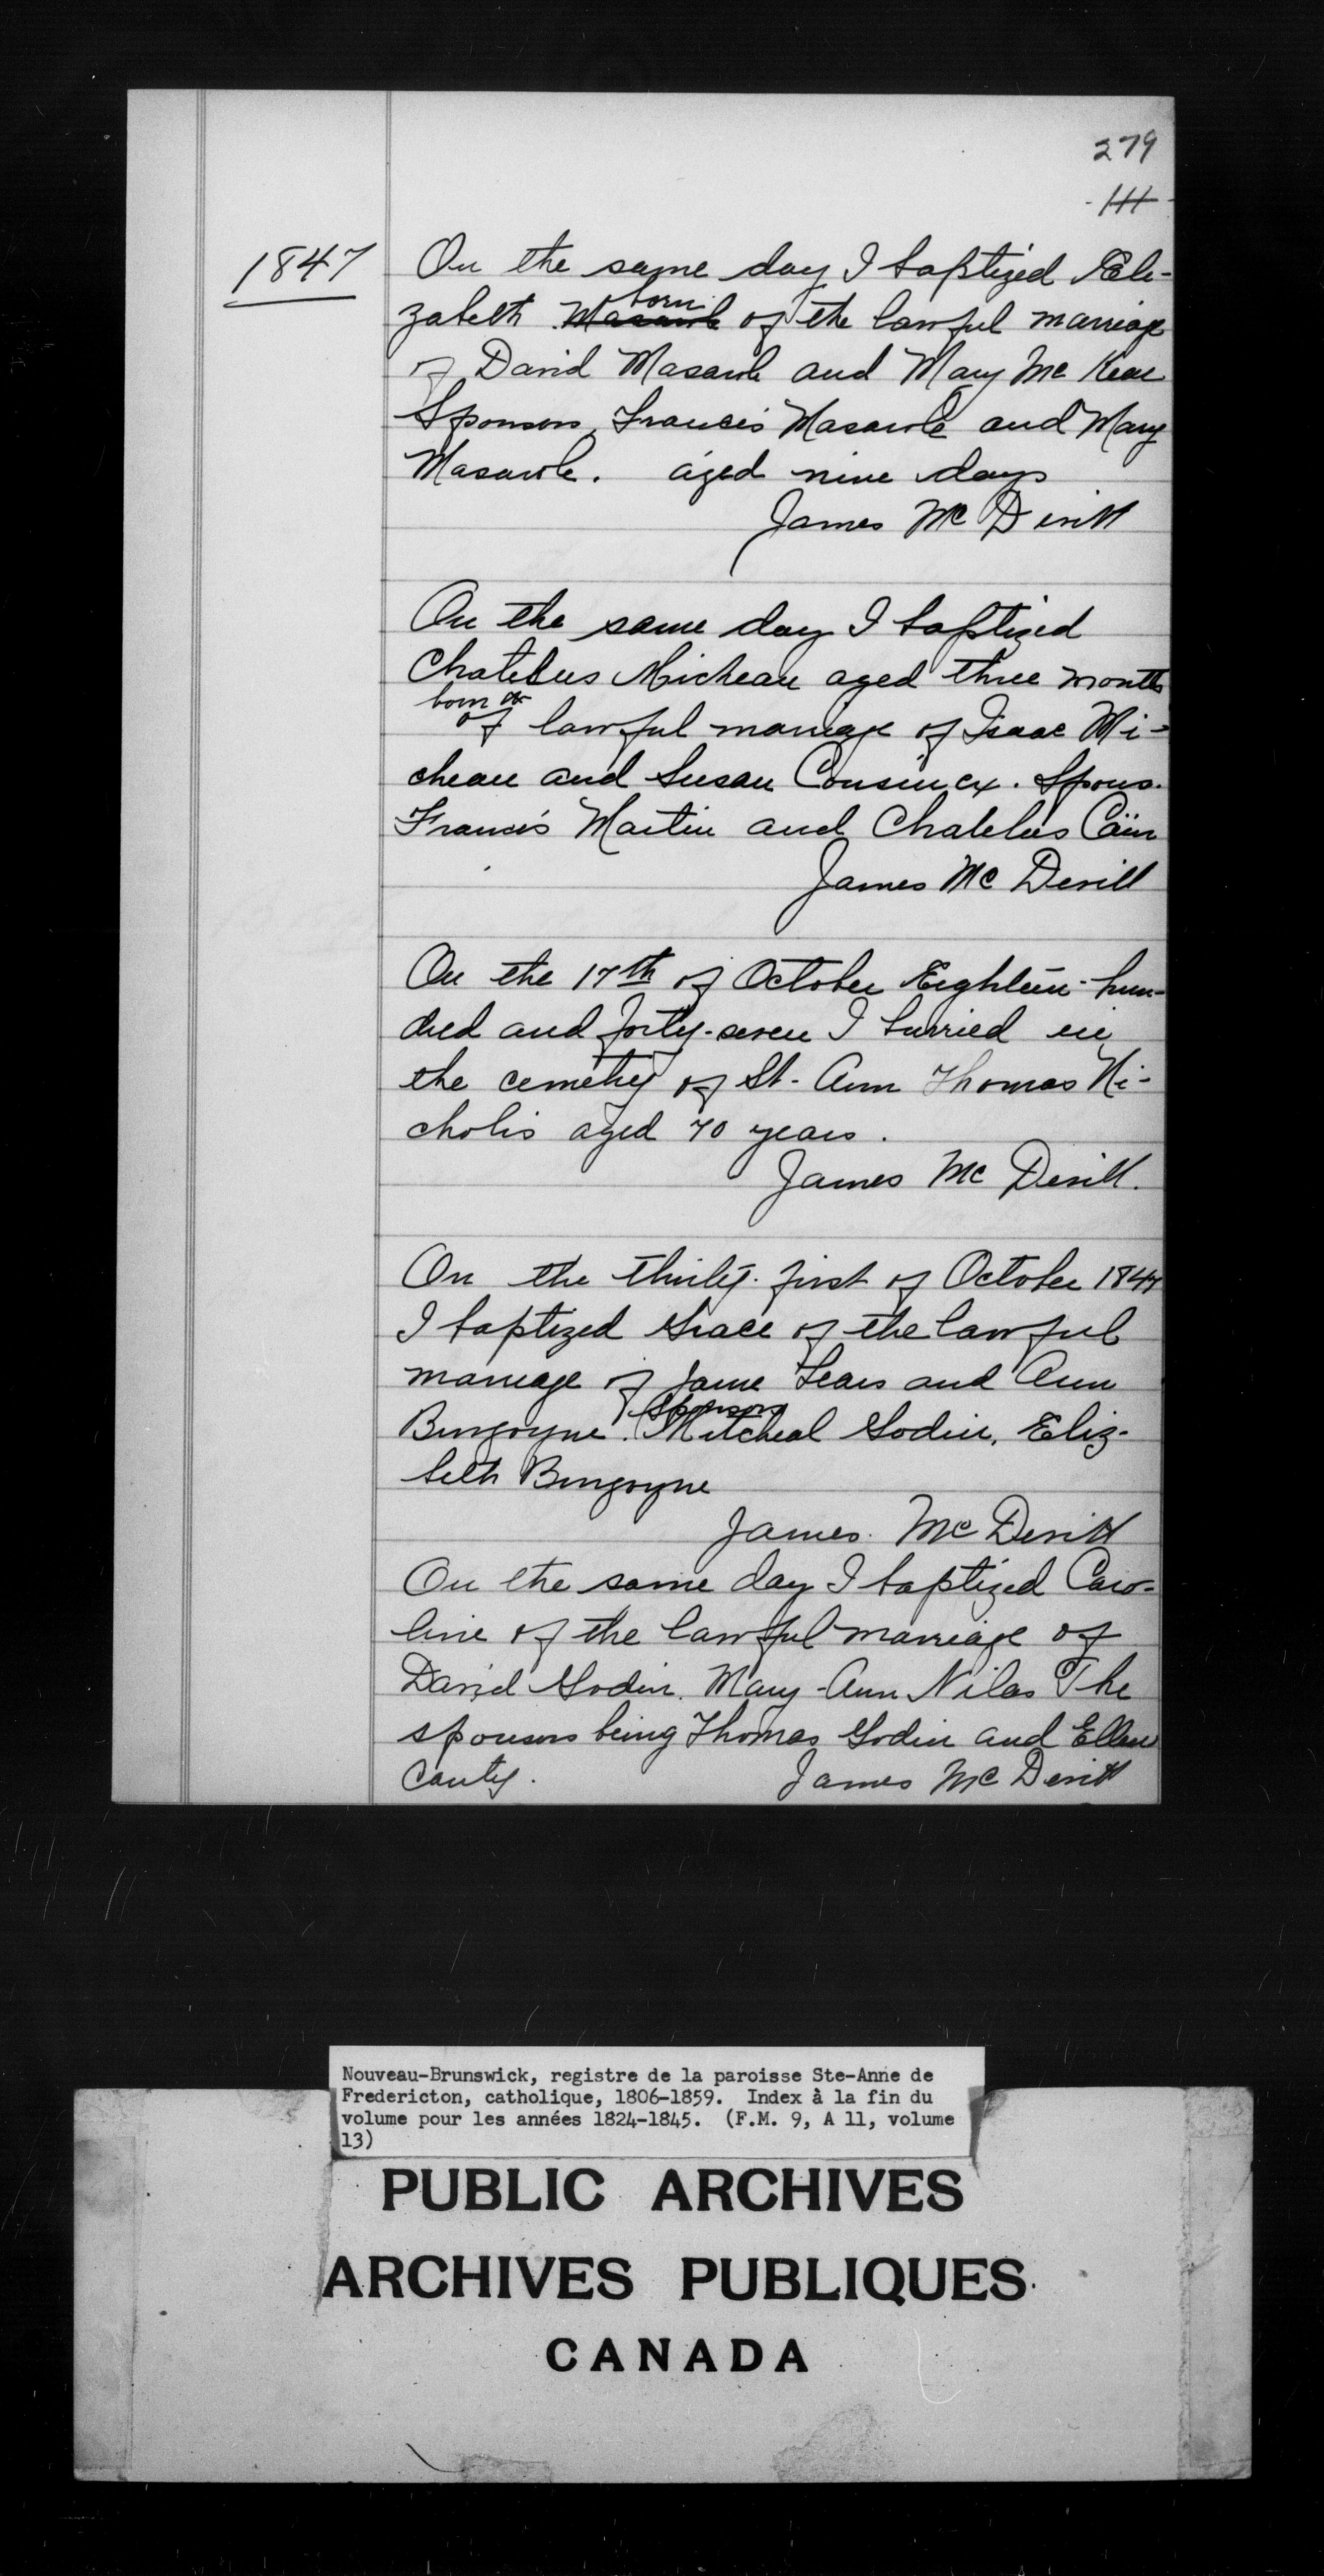 279
111
1847
On the same day I baptized Eli-
zabeth born of the lawful marriage
of David Masarole and Mary Mc Kean
Sponsors, Francis Masarole and Mary
Masarole. aged nine days
James Mc Devitt
On the same day I baptized
Micheau aged three months
born
of lawful marriage of Isaac Mi-
cheau and Susan Spons.
Francis Martin and Cäin
James Mc Devitt
On the 17th of October Eighteen-hun-
dred and forty-seven I burried in
the cemetry of St-Ann Thomas Ni-
cholis aged 70 years.
James Mc Devitt.
On the thirty-first of October 1847
I baptized Grace of the lawful
marriage of Jame Sears and Ann
Burgoyne. Sponsors Mitcheal Godin, Eliz-
beth Burgoyne
James Mc Devitt
On the same day I baptized Caro-
line of the lawful marriage of
David Godin. Mary-Ann Niles The
sponsors being Thomas Godin and Ellen
Canty. James Mc Devitt
Nouveau-Brunswick, registre de la paroisse Ste-Anne de
Fredericton, catholique, 1806-1859. Index à la fin du
volume pour les années 1824-1845. (F.M. 9, A 11, volume
13)
PUBLIC ARCHIVES
ARCHIVES PUBLIQUES
CANADA